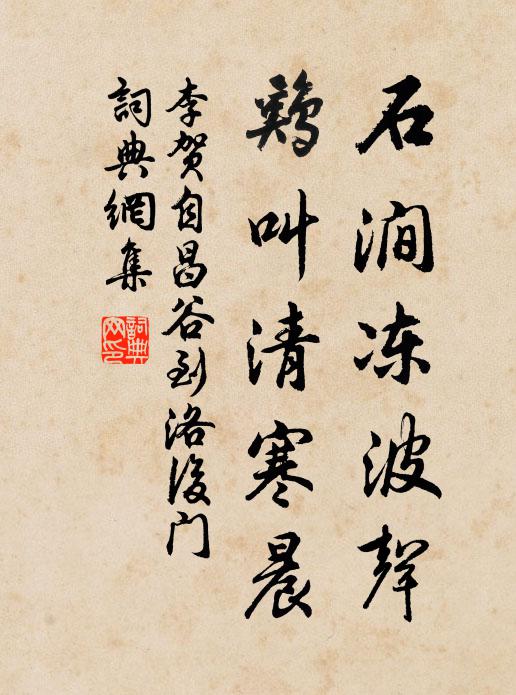 石澗冻波聲
鷄叫清寒晨
李贺自昌谷到洛後门
詞典網集
詞典网印